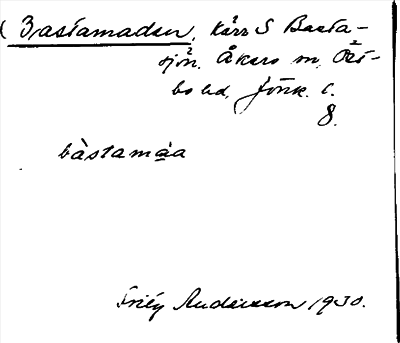 Bastamaden, kärr S Basta-
sjön. Åkers sn, Öst-
bo hd, Jönk. l.
8.
bàstamàa
Andersson 1930.